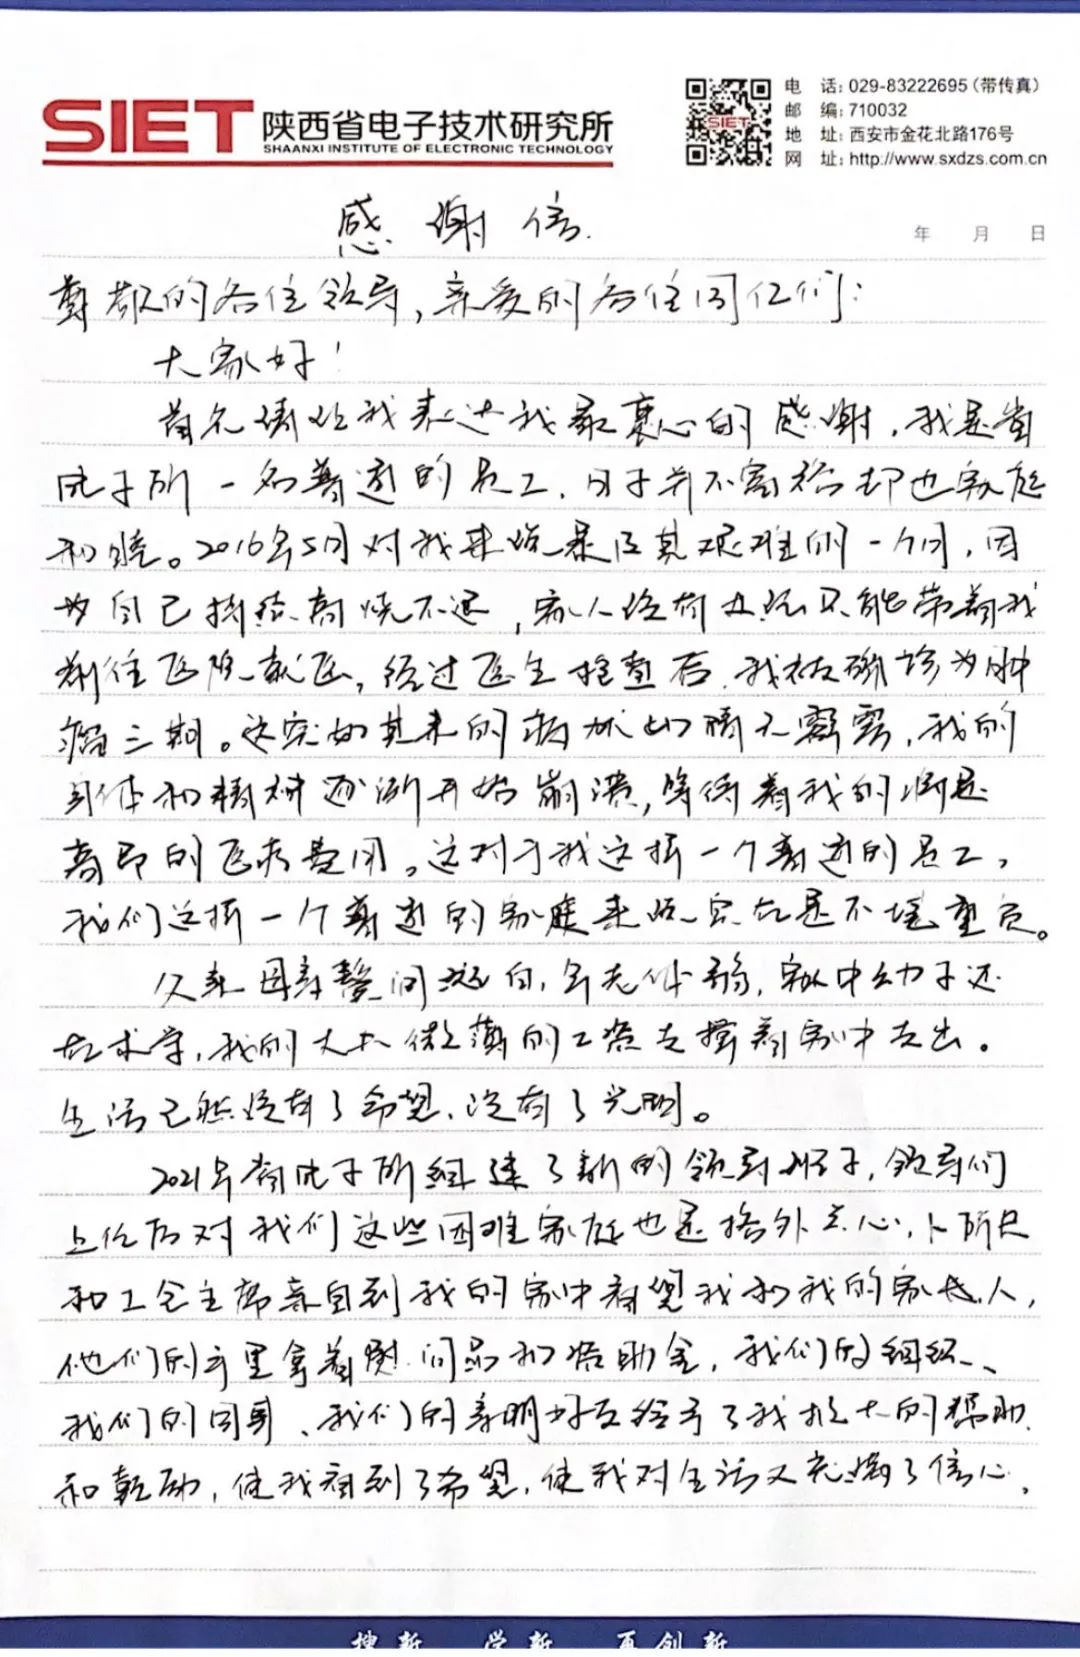 SIET 陕西省电子技术研究所
SHAANXI INSTITUTE OF ELECTRONIC TECHNOLOGY
SIET
电 话: 029-83222695(带传真)
邮 编: 710032
地 址: 西安市金花北路176号
网 址: http://www.sxdzs.com.cn
感谢信.
年 月 日
尊敬的各位领导,亲爱的各位同仁们:
大家好!
首先请让我表达我最衷心的感谢,我是省
电子所一名普通的员工,日子并不富裕却也家庭
和睦。2016年5月对我来说是及其艰难的一个月,因
为自己持续高烧不退,家人没有办法只能带着我
前往医院就医,经过医生检查后,我被确诊为肿
瘤三期。这突如其来的病状如晴天霹雳,我的
身体和精神逐渐开始崩溃,等待着我的将是
高昂的医疗费用。这对于我这样一个普通的员工,
我们这样一个普通的家庭来说实在是不堪重负。
父亲母亲鬓间斑白,年老体弱,家中幼子还
在求学,我的丈夫微薄的工资支撑着家中支出。
生活已然没有了希望,没有了光明。
2021年省电子所组建了新的领导班子,领导们
上任后对我们这些困难家庭也是格外关心,卜所长
和工会主席亲自到我的家中看望我和我的家人,
他们的手里拿着慰问品和资助金,我们的组织、
我们的同事、我们的亲朋好友给予了我极大的帮助
和鼓励,使我看到了希望,使我对生活又充满了信心,
搜新 学新 再创新